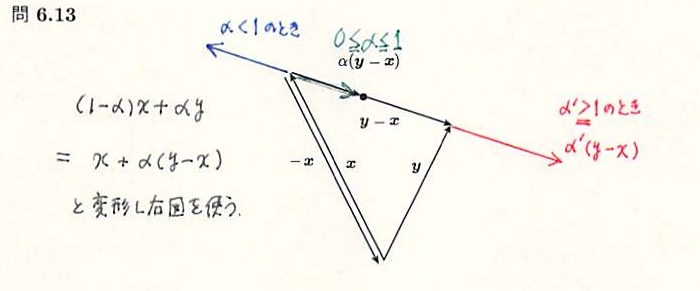 問 6.13
α<1のとき
0≦α≦1
α(y − x)
y − x
(1-α)x+αy
= x+α(y-x)
と変形し右図を使う.
−x
x
y
α'>1のとき
α'(y-x)